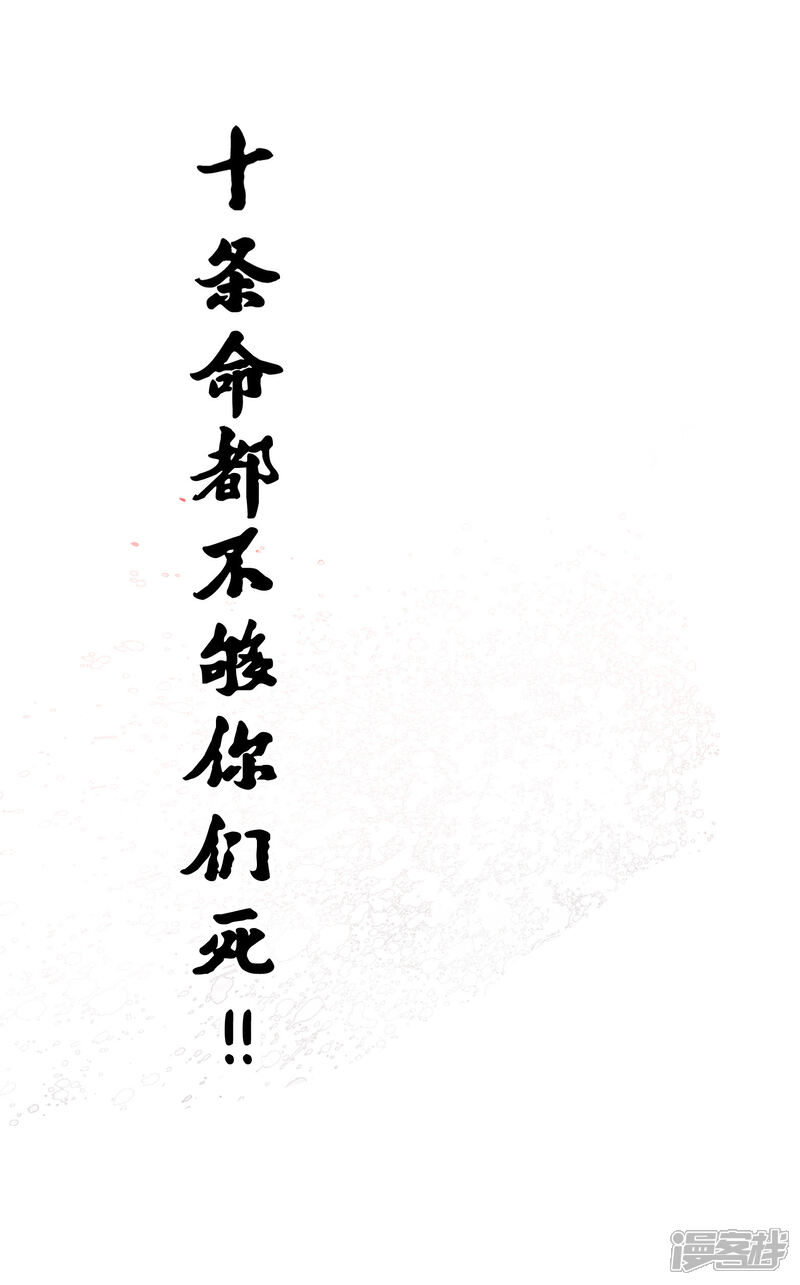 十条命都不够你们死!!
漫客栈